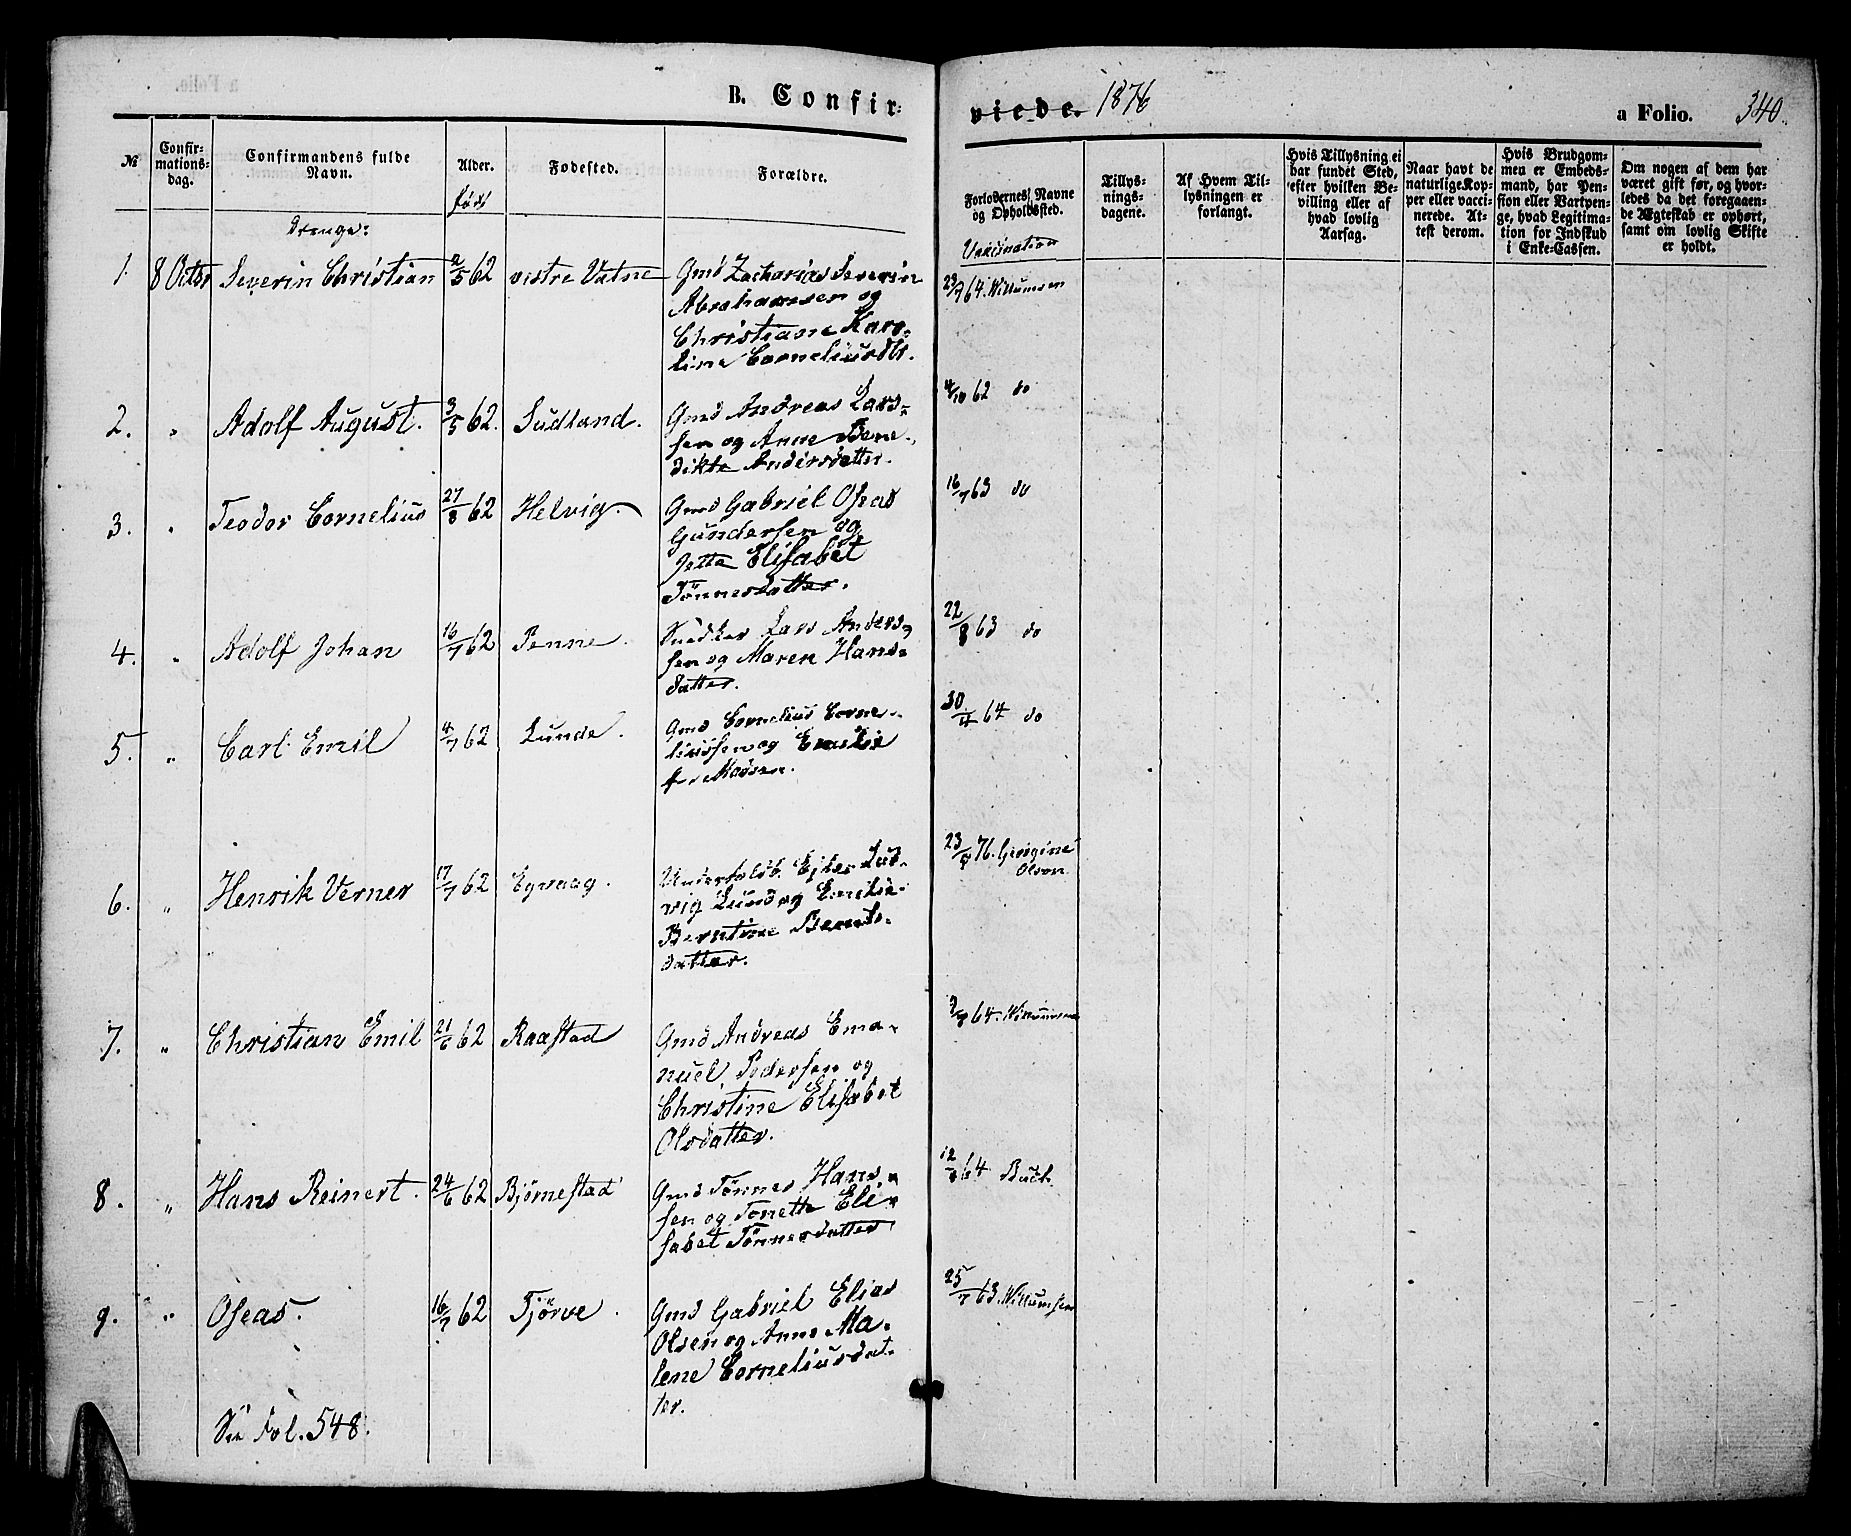 a Folio.
B. Confir:
viede. 1876
a Folio. 340.
№
Confir-
mations-
dag.
Confirmandens fulde
Navn.
Alder.
født
Fødested.
Forældre.
Forlovernes Navne
og Opholdssted.
Vaccination
Tillys-
nings-
dagene.
Af Hvem Til-
lysningen er
forlangt.
Hvis Tillysning ei
har fundet Sted,
efter hvilken Be-
villing eller af
hvad lovlig
Aarsag.
Naar havt de
naturlige Kop-
per eller vacci-
nerede. At-
test derom.
Hvis Brudgom-
men er Embeds-
mand, har Pen-
sion eller Vartpen-
ge, hvad Legitima-
tion for Indskud
i Enke-Cassen.
Om nogen af dem har
været gift før, og hvor-
ledes da det foregaaen-
de Ægteskab er ophørt,
samt om lovlig Skifte
er holdt.
Drenge:
1. 8 Octbr Severin Christian 2/5 62 vistre Vatne Gmd Zacharias Severin 23/7 64. Willumsen
Abrahamsen og
Christiane Karo-
line Corneliusdtr.
2. " Adolf August. 3/5 62. Sudland. Gmd Andreas Lars- 4/10 62 do
sen og Anne Bene-
dikte Andersdatter.
3. " Teodor Cornelius 27/8 62 Helvig. Gmd Gabriel Oseas 16/7 63 do
Gundersen og
Jette Elisabet
Tönnesdatter.
4. " Adolf Johan 16/7 62 Penne. Snedker Lars Anders- 22/8 63 do
sen og Maren Hans-
datter.
5. " Carl Emil 4/7 62 Lunde. Gmd Cornelius Corne- 30/4 64 do
liussen og Emilie
f. Madsen.
6. " Henrik Verner 17/7 62 Egvaag. Underfoldb. Ejler Lud- 23/9 76. Georgine
Olson
vig Lund og Emilie
Berntine Bernts-
datter.
7. " Christian Emil 21/6 62 Raastad Gmd Andreas Ema- 64. Willumsen
nuel Pedersen og
Christine Elisabet
Olsdatter.
8. " Hans Reinert. 24/6 62 Bjørnestad Gmd Tönnes Hans- 64 Buch
sen og Tonette Eli-
sabet Tönnesdatter
9. " Oseas. 16/7 62 Tjörve. Gmd Gabriel Elias 25/7 63. Willumsen
Olsen og Anne Ma-
lene Corneliusdat-
ter.
See Fol. 548.